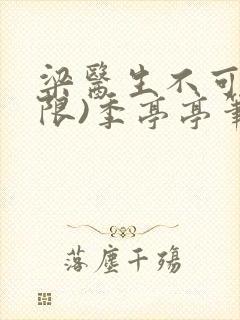 梁醫生不可
限)季亭亭筆
落塵千殤